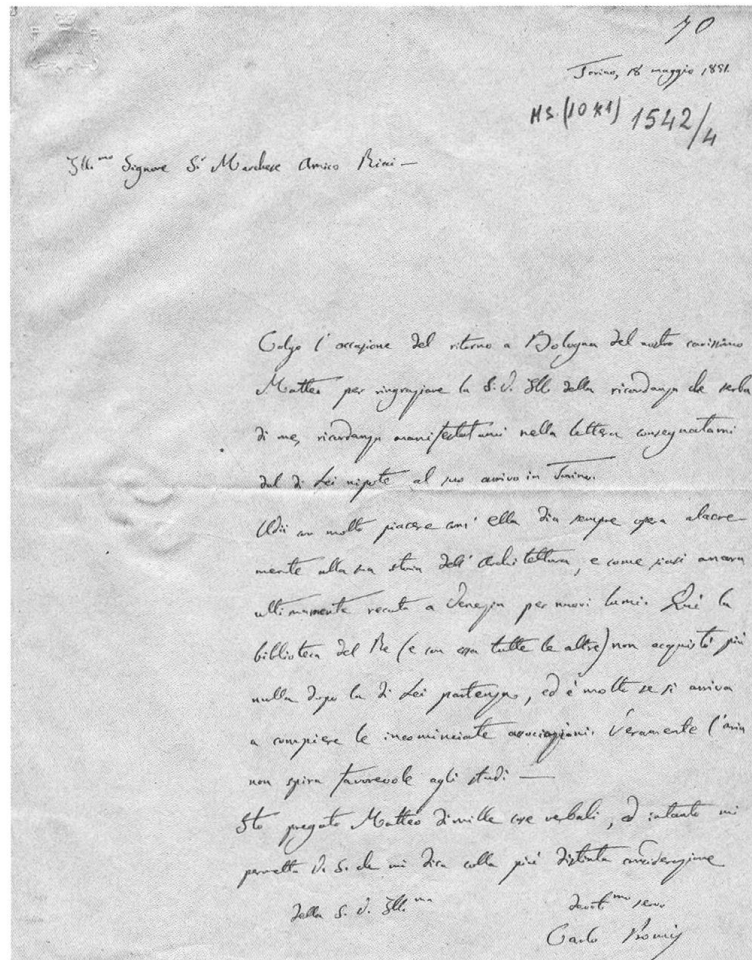 70
Torino, 18 maggio 1851.
MS. (10 * 1) 1542/4
Ill.mo Signore Sr Marchese Amico Ricci —
Colgo l'occasione del ritorno a Bologna del nostro carissimo
Matteo per ringraziare la S. V. Ill. della ricordanza che serba
di me, ricordanza manifestatami nella lettera consegnatami
dal di Lei nipote al suo arrivo in Torino.
Udii con molto piacere com' ella dia sempre opera alacre-
mente alla sua storia dell' Architettura, e come siasi ancora
ultimamente recata a Venezia per nuovi lumi. Quì la
biblioteca del Re (e con essa tutte le altre) non acquistò più
nulla dopo la di Lei partenza, ed è molto se si arriva
a compiere le incominciate associazioni. Veramente l'aria
non spira favorevole agli studi —
Ho pregato Matteo di mille cose verbali, ed intanto mi
permetta V. S. che mi dica colla più distinta considerazione
della S. V. Ill.ma
devot.mo servo
Carlo Promis